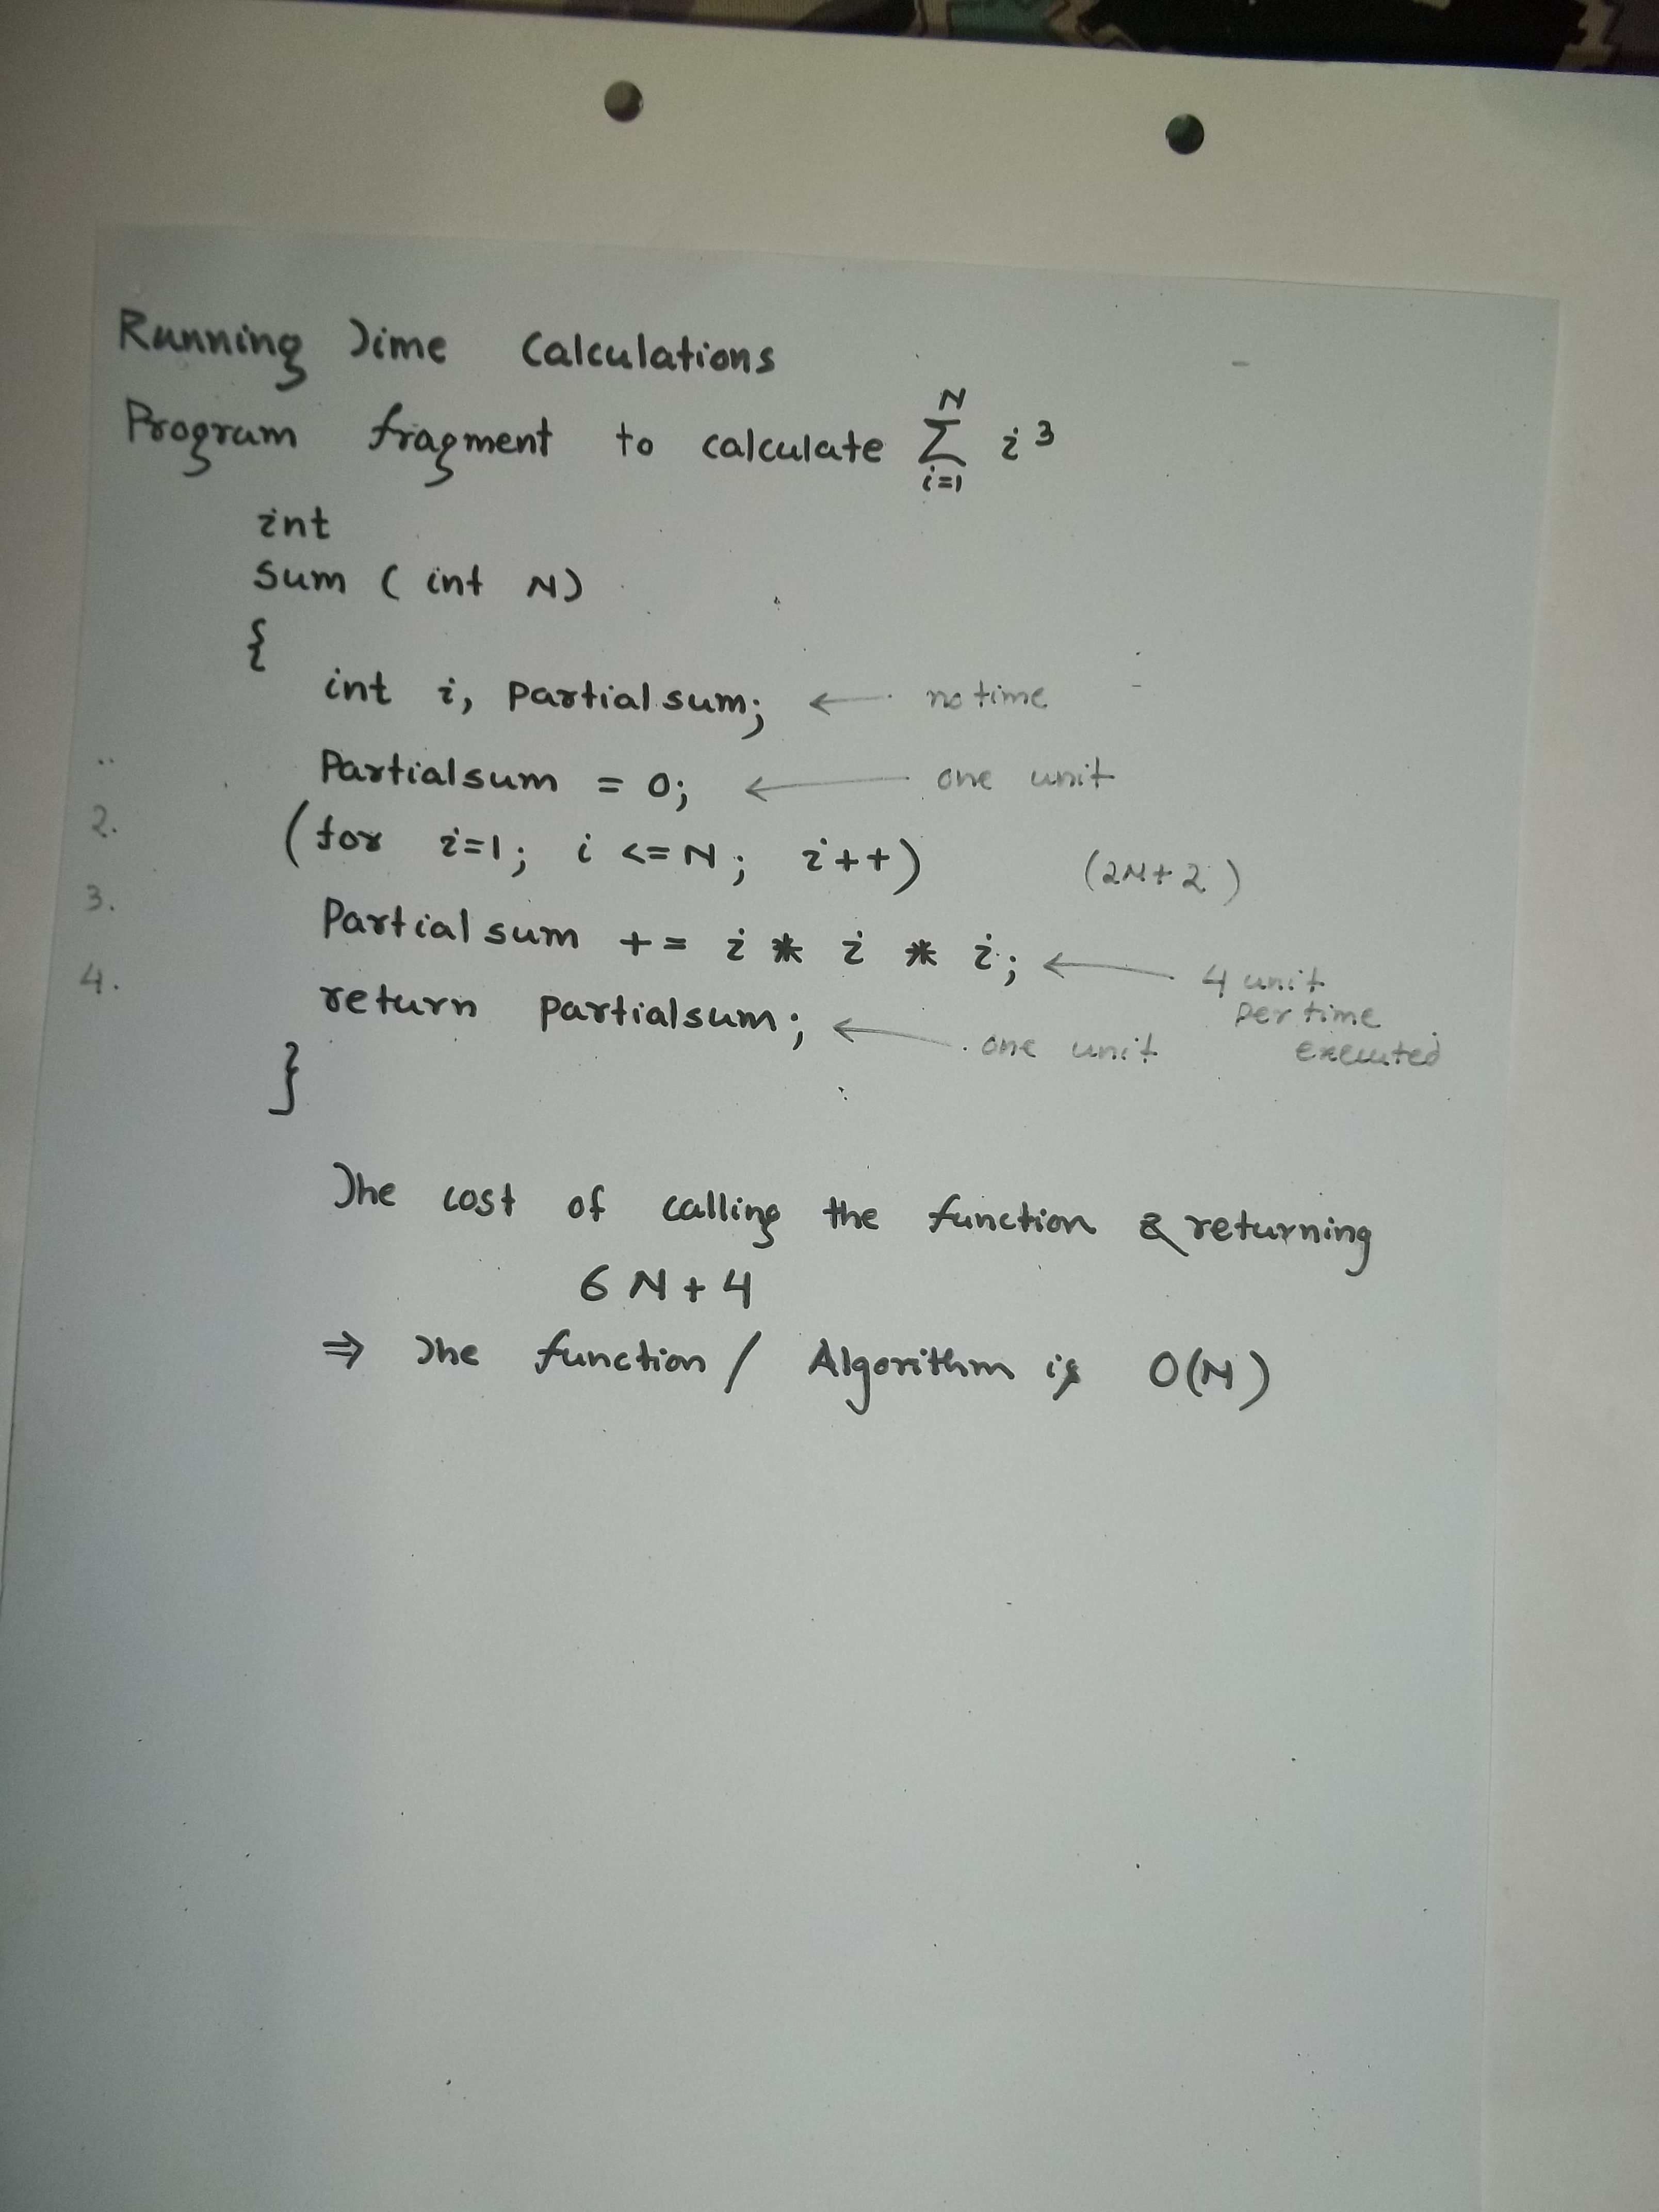 Running Time Calculations
Program fragment to calculate N Σ i=1 i³
int
sum ( int N)
{
int i, Partialsum; ← no time
Partialsum = 0; ← one unit
2. (for i=1; i <= N; i++) (2N+2)
3. Partialsum += i * i * i; ← 4 unit per time executed
4. return partialsum; ← one unit
}
The cost of calling the function & returning
6N+4
⇒ The function / Algorithm is O(N)